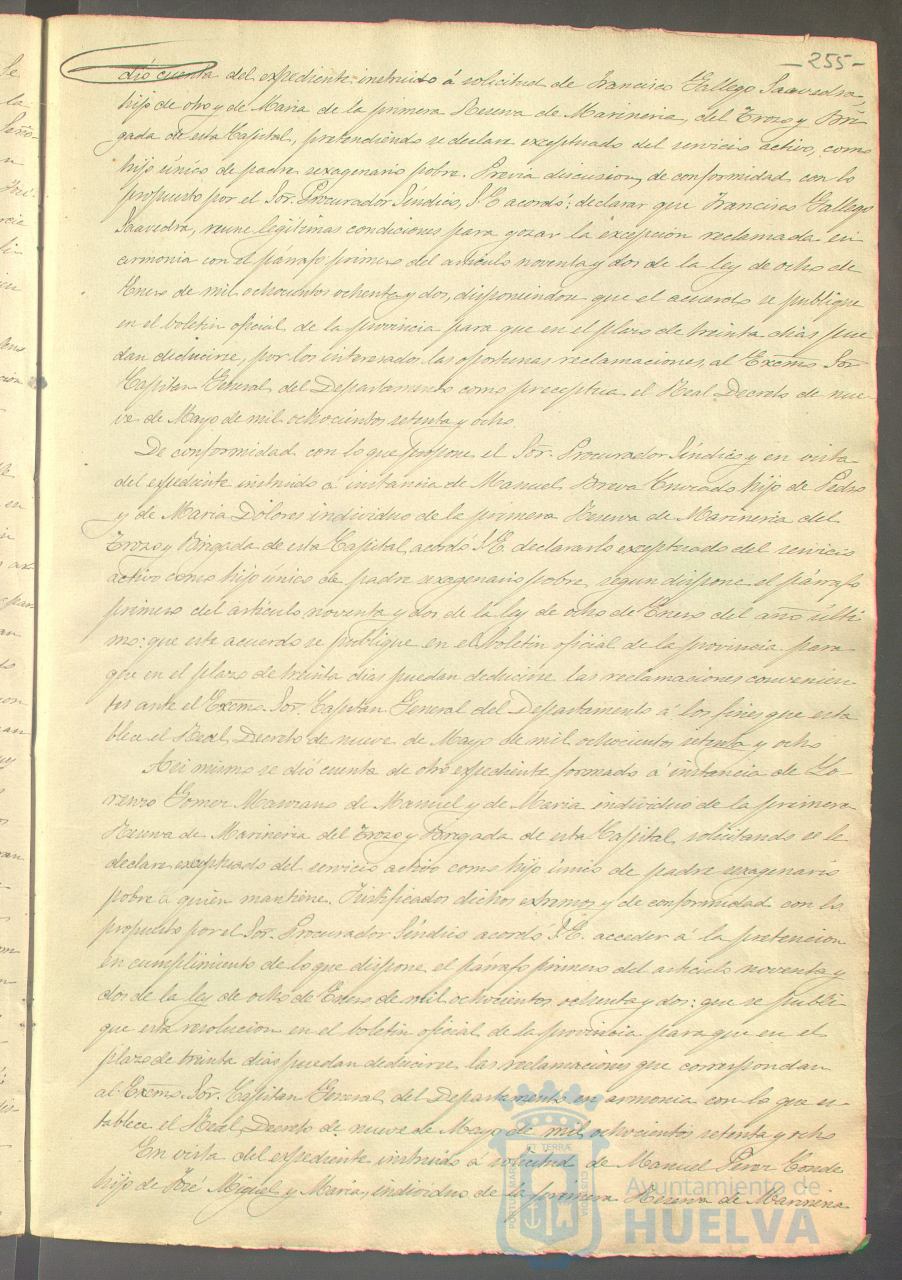 - 255 -
dió cuenta del expediente instruido á solicitud de Francisco Gallego Saavedra,
hijo de otro y de Maria de la primera Reserva de Marineria, del Trozo y Bri-
gada de esta Capital, pretendiendo se declare exceptuado del servicio activo, como
hijo único de padre sexagenario pobre. Prévia discusion, de conformidad con lo
propuesto por el Sor. Procurador Síndico, S. E. acordó: declarar que Francisco Gallego
Saavedra, reune legítimas condiciones para gozar la excepcion reclamada en
armonia con el párrafo primero del artículo noventa y dos de la ley de ocho de
Enero de mil ochocientos ochenta y dos, disponiendose que el acuerdo se publique
en el boletin oficial de la provincia para que en el plazo de treinta dias pue-
dan deducirse, por los interesados, las oportunas reclamaciones, al Excmo. Sor.
Capitan General del Departamento como preceptua el Real Decreto de nue-
ve de Mayo de mil ochocientos setenta y ocho.
De conformidad con lo que propone el Sor. Procurador Síndico y en vista
del expediente instruido á instancia de Manuel Breva hijo de Pedro
y de Maria Dolores individuo de la primera Reserva de Marineria del
Trozo y Brigada de esta Capital, acordó S. E. declararlo exceptuado del servicio
activo como hijo único de padre sexagenario pobre, segun dispone el párrafo
primero del artículo noventa y dos de la ley de ocho de Enero del año últi-
mo: que este acuerdo se publique en el boletin oficial de la provincia para
que en el plazo de treinta dias puedan deducirse las reclamaciones convenien-
tes ante el Excmo. Sor. Capitan General del Departamento á los fines que esta
blece el Real Decreto de nueve de Mayo de mil ochocientos setenta y ocho
Asi mismo se dió cuenta de otro expediente formado á instancia de Lo-
renzo Gomez Manzano de Manuel y de Maria individuo de la primera
Reserva de Marineria del Trozo y Brigada de esta Capital, solicitando se le
declare exceptuado del servicio activo como hijo único de padre sexagenario
pobre á quien mantiene. Justificados dichos extremos y de conformidad con lo
propuesto por el Sor. Procurador Síndico acordó S. E. acceder á la pretencion
en cumplimiento de lo que dispone el párrafo primero del artículo noventa y
dos de la ley de ocho de Enero de mil ochocientos ochenta y dos: que se publi-
que esta resolucion en el boletin oficial de la provincia para que en el
plazo de treinta dias puedan deducirse las reclamaciones que correspondan
al Excmo. Sor. Capitan General del Departamento en armonia con lo que es-
tablece el Real Decreto de nueve de Mayo de mil ochocientos setenta y ocho
En vista del expediente instruido á solicitud de Manuel Perez Conde
hijo de José Miguel y Maria, individuo de la primera Reserva de Marineria
Ayuntamiento de
HUELVA